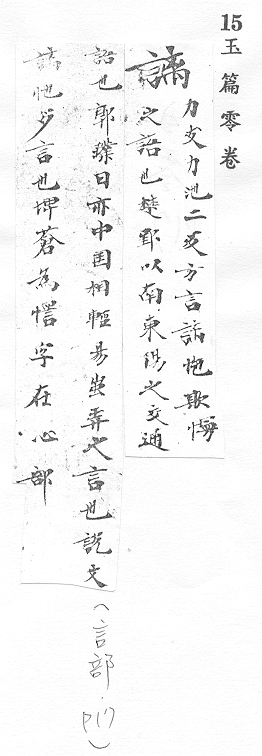 15 玉篇零卷
謧 力支力池二反方言謧忚欺慢
之語也楚郢以南東陽之交通
語也郭璞曰亦中国相輕易蚩弄之言也說文
謧忚多言也埤蒼為字在心部
(言部.P17)